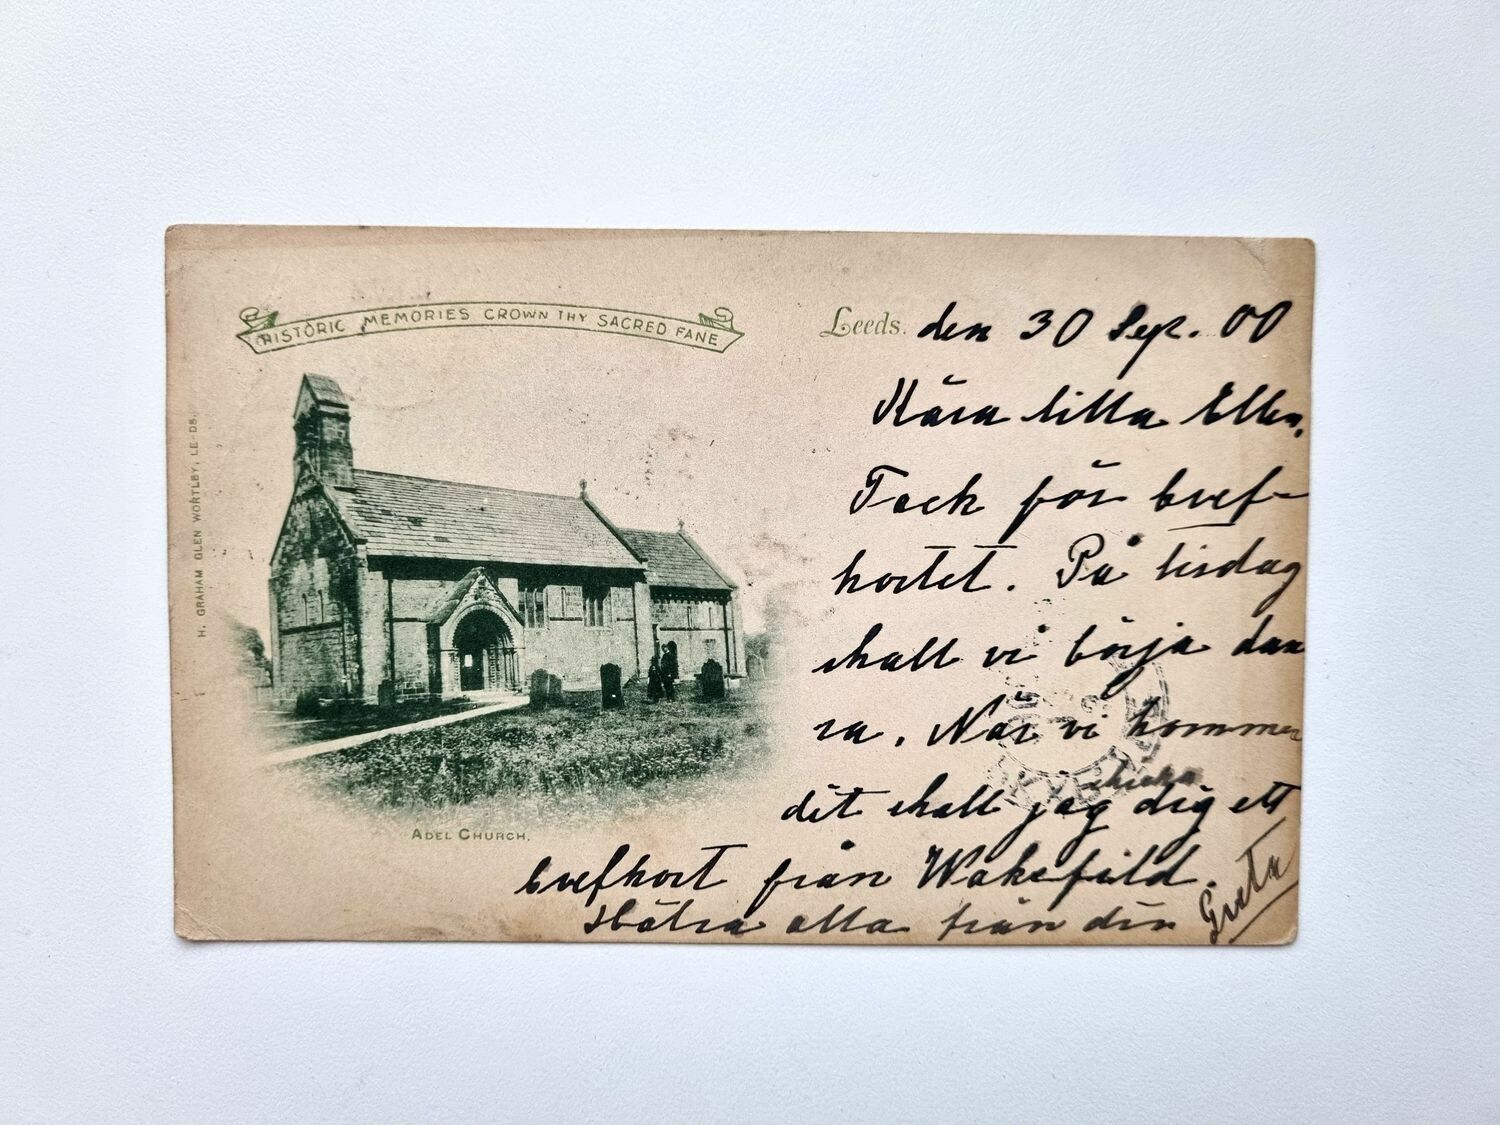 HISTORIC MEMORIES CROWN THY SACRED FANE
H. GRAHAM GLEN WORTLEY, LEEDS.
ADEL CHURCH.
Leeds. den 30 Sep. 00
Kära lilla Ellen.
Tack för bref-
kortet. På tisdag
skall vi börja dan
ra. När vi kommer
dit skall jag skicka dig ett
brefkort från Wakefield.
Hälsa alla från din
Greta